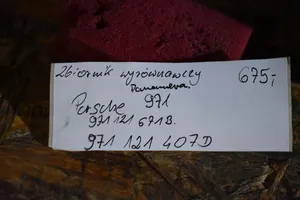 Zbiornik wyrównawczy 675,-
Panamera
Porsche 971
971 121 671 B.
971 121 407 D